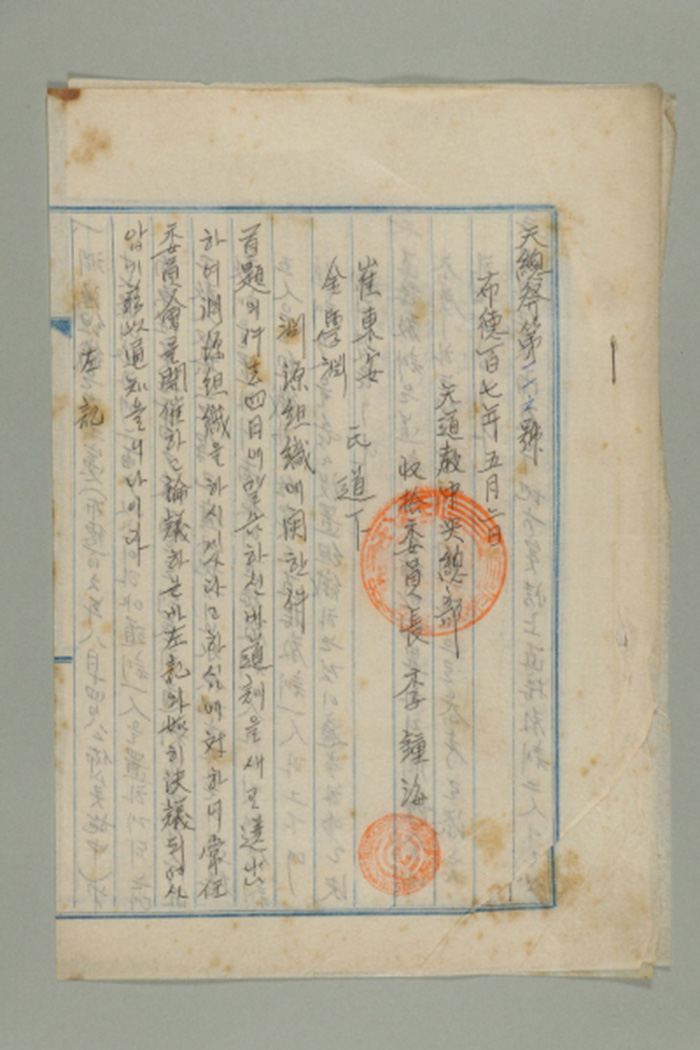 天總發第 號
布德百七年五月二日
天道敎中央總部
收拾委員長 李鐘海
崔東安
金學淵
氏 道下
淵源組織에 関한 件
首題의 件 去四日에 말슴하신바 道체을 새로 選出
하며 淵源組織을 하시 라고 하심에 하니 常任
委員會를 開催하고 論議하온바 左記와 如히 決議되여사
압기 玆以通知올니나이다
左記